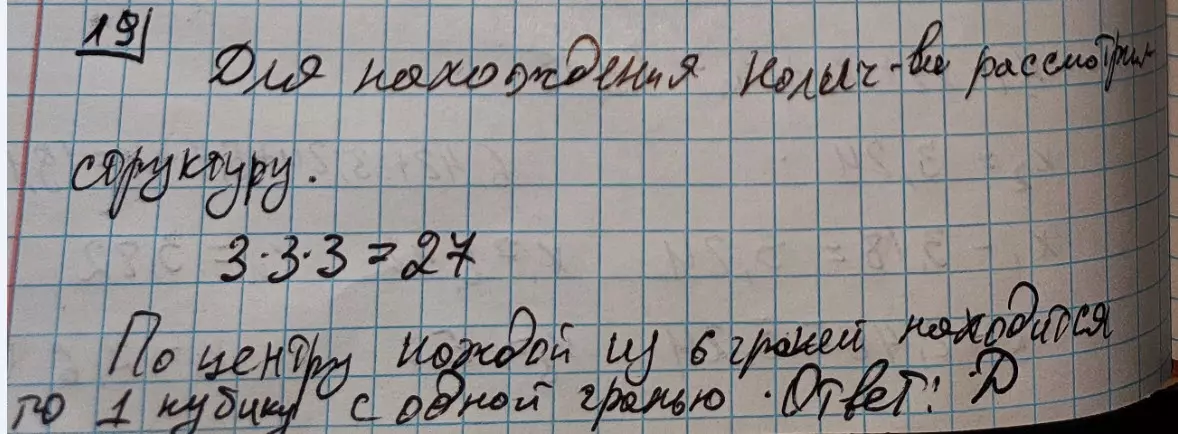 19
Для нахождения колич-ва рассмотрим
структуру.
3·3·3 = 27
По центру каждой из 6 граней находится
по 1 кубику с одной гранью. Ответ: D